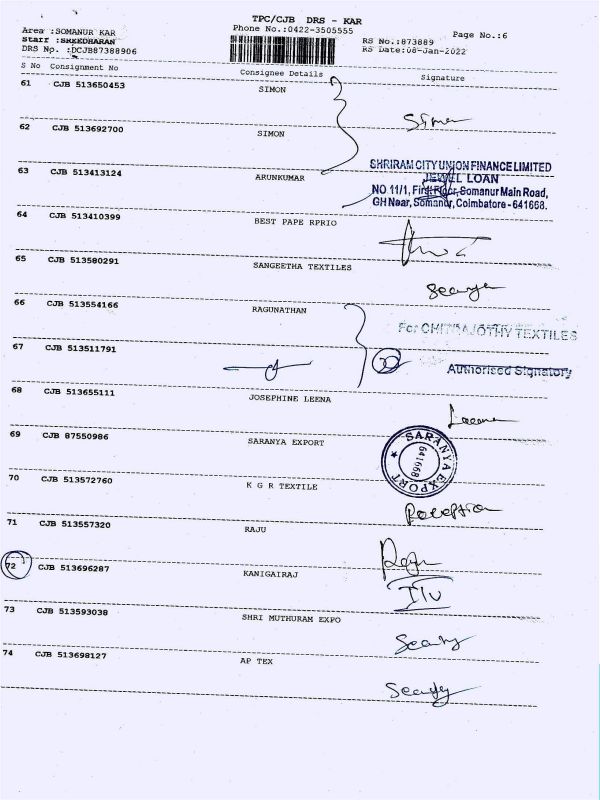 TPC/CJB DRS - KAR
Area :SOMANUR KAR Phone No.:0422-3505555 Page No.:6
Staff :SREEDHARAN RS No.:873889
DRS No. :DCJB87388906 RS Date:08-Jan-2022
S No Consignment No Consignee Details Signature
61 CJB 513650453 SIMON
Simon
62 CJB 513692700 SIMON
63 CJB 513413124 ARUNKUMAR
SHRIRAM CITY UNION FINANCE LIMITED
JEWEL LOAN
NO 11/1, First Floor, Somanur Main Road,
GH Near, Somanur, Coimbatore - 641668.
64 CJB 513410399 BEST PAPE RPRIO
65 CJB 513580291 SANGEETHA TEXTILES
66 CJB 513554166 RAGUNATHAN
For CHITRAJOTHY TEXTILES
67 CJB 513511791
Authorised Signatory
68 CJB 513655111 JOSEPHINE LEENA
Leena
69 CJB 87550986 SARANYA EXPORT
SARANYA EXPORT
641668
70 CJB 513572760 K G R TEXTILE
Reception
71 CJB 513557320 RAJU
Raju
72 CJB 513696287 KANIGAIRAJ
73 CJB 513593038 SHRI MUTHURAM EXPO
74 CJB 513698127 AP TEX